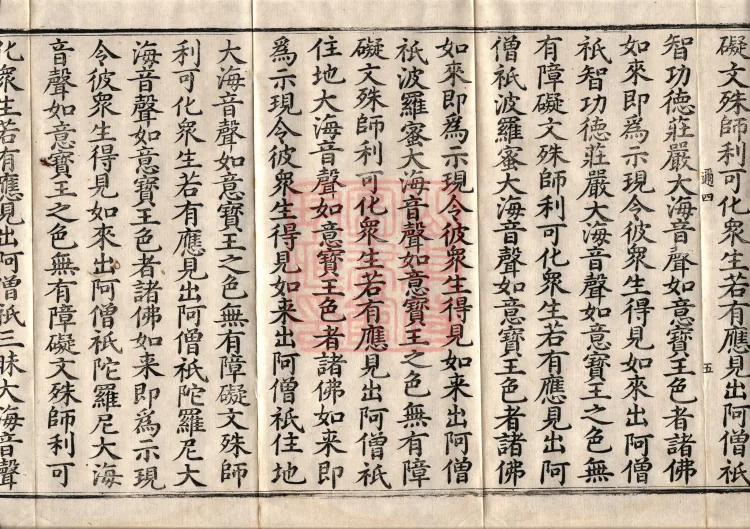 礙文殊師利可化衆生若有應見出阿僧祇
智功德莊嚴大海音聲如意寶王色者諸佛
通四
五
如來即爲示現令彼衆生得見如來出阿僧
祇智功德莊嚴大海音聲如意寶王之色無
有障礙文殊師利可化衆生若有應見出阿
僧祇波羅蜜大海音聲如意寶王色者諸佛
如來即爲示現令彼衆生得見如来出阿僧
祇波羅蜜大海音聲如意寶王之色無有障
礙文殊師利可化衆生若有應見出阿僧祇
住地大海音聲如意寶王色者諸佛如來即
爲示現令彼衆生得見如来出阿僧祇住地
大海音聲如意寶王之色無有障礙文殊師
利可化衆生若有應見出阿僧祇陀羅尼大
海音聲如意寶王色者諸佛如来即爲示現
令彼衆生得見如来出阿僧祇陀羅尼大海
音聲如意寶王之色無有障礙文殊師利可
化衆生若有應見出阿僧祇三昧大海音聲